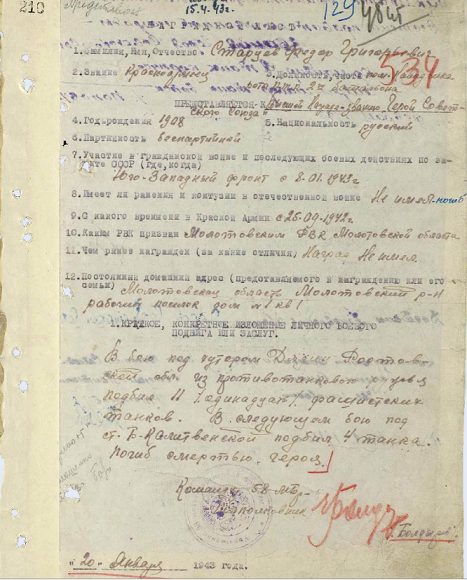 210
15.4.43.
129
убит
534
1. Фамилия, Имя, Отчество Старцев Федор Григорьевич
2. Звание Красноармеец 3. Должность, часть пом. Наводчика
батальона
ПРЕДСТАВЛЯЕТСЯ К Высшей Награде-Званию Герой Совет-
ского Союза
4. Год рождения 1908 5. Национальность русский
6. Партийность беспартийный
7. Участие в Гражданской войне и последующих боевых действиях по за-
щите СССР (Где, когда)
Юго-Западный фронт с 8.01.1943г
8. Имеет ли ранения и контузии в отечественной войне Не имеет. погиб
9. С какого времени в Красной Армии с 25.09.1942г
10. Каким РВК призван Молотовским РВК Молотовской области
11. Чем ранее награжден (за какие отличия) Наград Не имеет
12. Постоянный домашний адрес (представляемого к награждению или его
семьи) Молотовская область Молотовский р-н
рабочий поселок дом №1 кв 1
1. КРАТКОЕ, КОНКРЕТНОЕ ИЗЛОЖЕНИЕ ЛИЧНОГО БОЕВОГО
ПОДВИГА ИЛИ ЗАСЛУГ.
В бою под хутором Дячкин Ростов-
ской обл. из противотанкового ружья
подбил 11 (одинадцать) фашистских
танков. В следующем бою под
ст. Б-Калитвенской подбил 4 танка.
Погиб смертью героя.
Командир
Подполковник
Болдырев
"20" Января 1943 года.